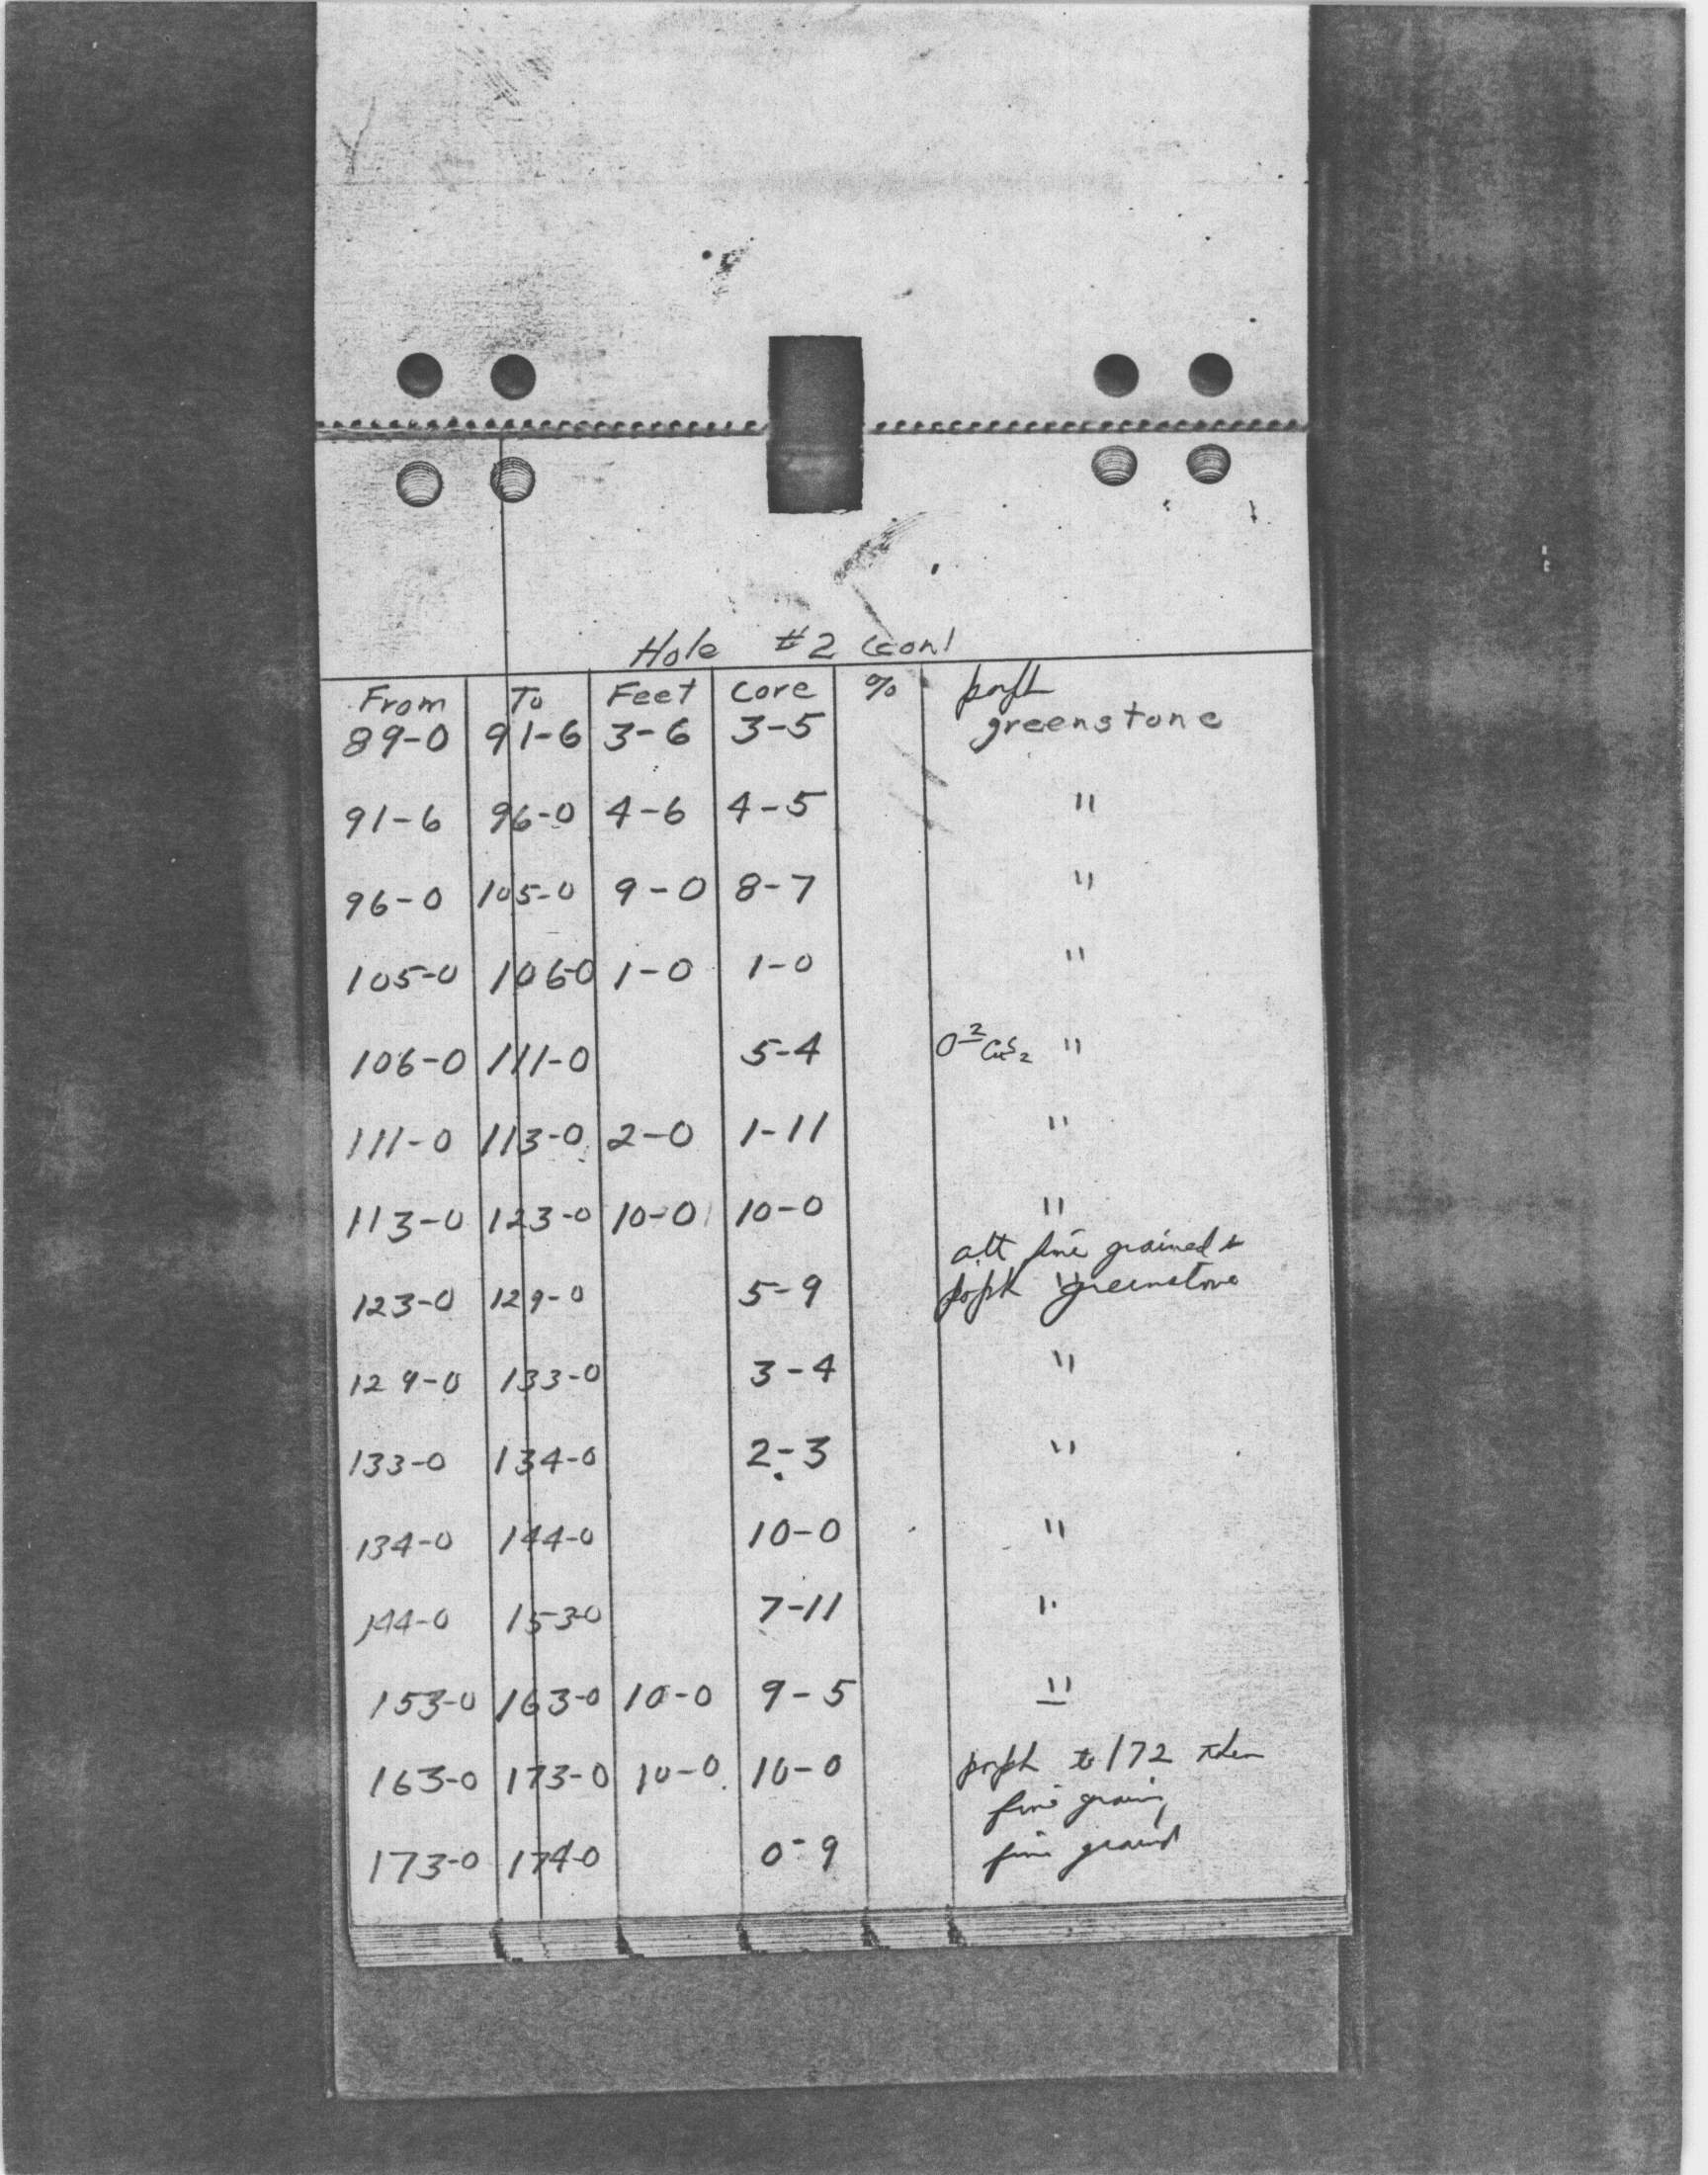 Hole #2 (con)
From To Feet Core % porph
89-0 91-6 3-6 3-5 greenstone
91-6 96-0 4-6 4-5 "
96-0 105-0 9-0 8-7 "
105-0 106-0 1-0 1-0 "
106-0 111-0 5-4 "
111-0 113-0 2-0 1-11 "
113-0 123-0 10-0 10-0 "
alt fine grained &
123-0 129-0 5-9 porph greenstone
129-0 133-0 3-4 "
133-0 134-0 2-3 "
134-0 144-0 10-0 "
144-0 153-0 7-11 "
153-0 163-0 10-0 9-5 "
163-0 173-0 10-0 10-0 porph to 172 then
fine grain
173-0 174-0 0-9 fine graind